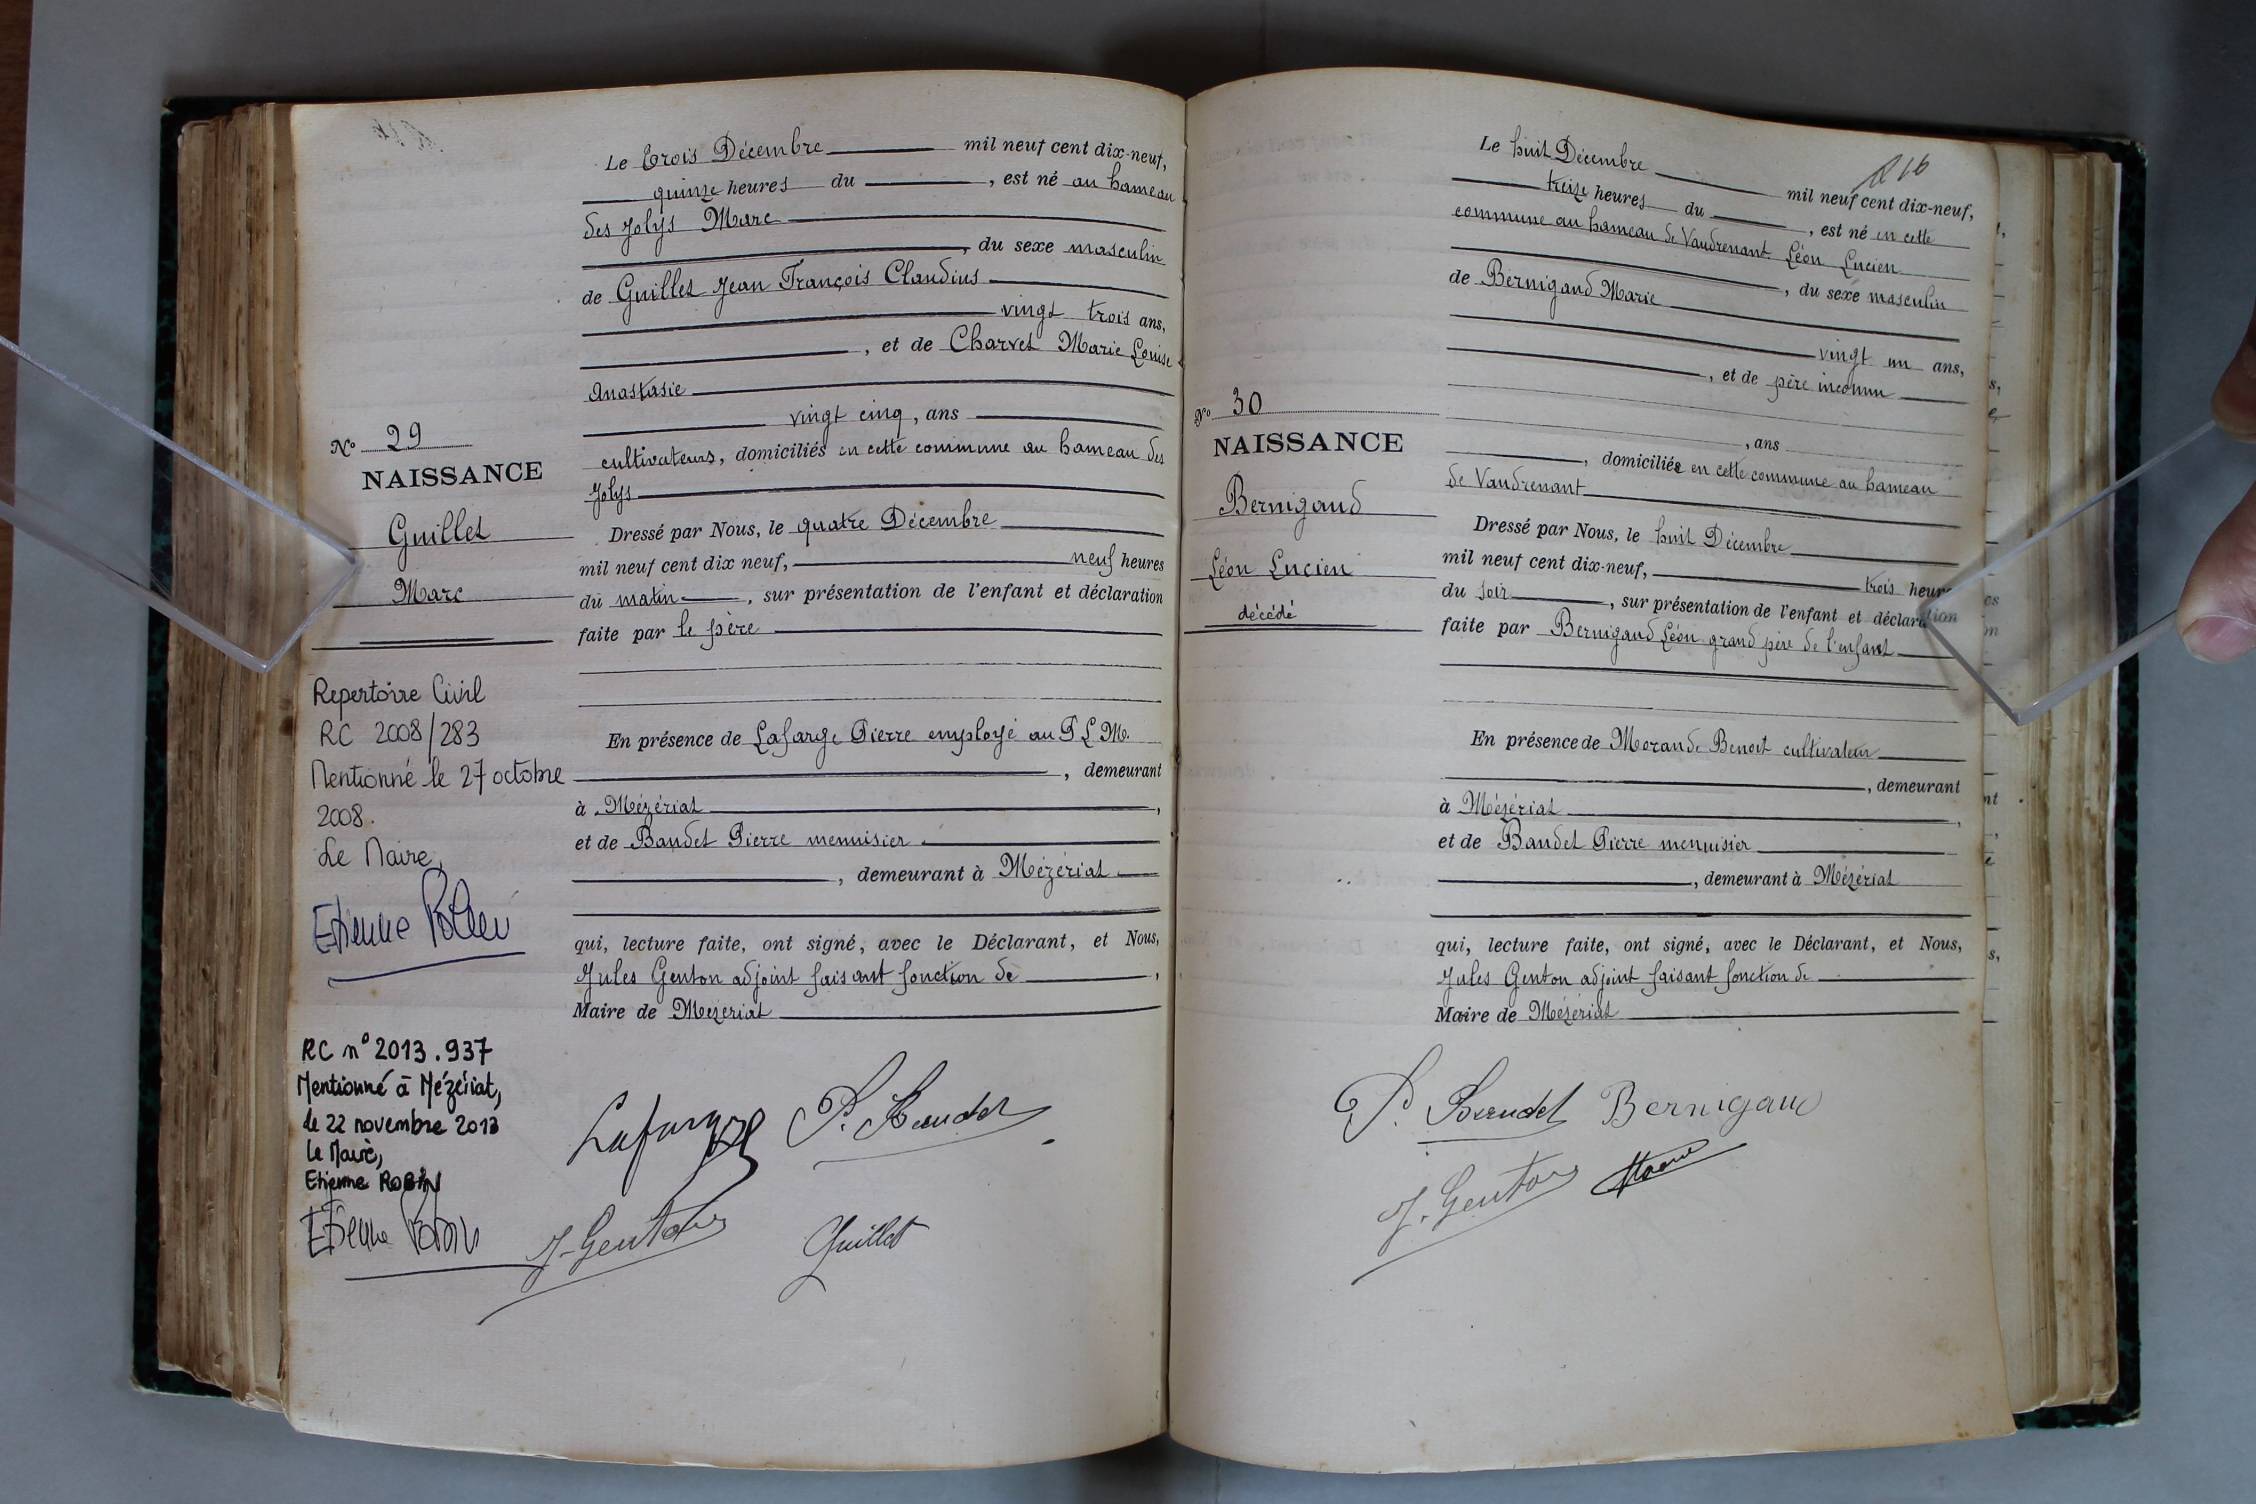 Le trois Décembre mil neuf cent dix-neuf,
quinze heures du , est né au hameau
des Jolys Marc
, du sexe masculin
de Guillet Jean François Claudius
vingt trois ans,
, et de Charvet Marie Louise
Anastasie
vingt cinq, ans
cultivateurs, domiciliés en cette commune au hameau des
Jolys
Dressé par Nous, le quatre Décembre
mil neuf cent dix neuf, neuf heures
du matin , sur présentation de l'enfant et déclaration
faite par le père
En présence de Lafarge Pierre employé au P L M.
, demeurant
à Mézériat ,
et de Baudet Pierre menuisier
, demeurant à Mézériat
qui, lecture faite, ont signé, avec le Déclarant, et Nous,
Jules Genton adjoint faisant fonction de ,
Maire de Mézériat
Lafarge P. Baudet
J. Genton Guillet
No 29
NAISSANCE
Guillet
Marc
Repertoire Civil
RC 2008/283
Mentionné le 27 octobre
2008.
Le Maire,
Etienne Robin
RC n° 2013.937
Mentionné à Mézériat,
le 22 novembre 2013
le Maire,
Etienne ROBIN
Etienne Robin
216
Le huit Décembre mil neuf cent dix-neuf,
treize heures du , est né en cette
commune au hameau de Vaudrenant Léon Lucien
, du sexe masculin
de Bernigaud Marie
vingt un ans,
, et de père inconnu
, ans
, domiciliée en cette commune au hameau
de Vaudrenant
Dressé par Nous, le huit Décembre
mil neuf cent dix-neuf, trois heures
du soir , sur présentation de l'enfant et déclaration
faite par Bernigaud Léon grand père de l'enfant
En présence de Morand Benoit cultivateur
, demeurant
à Mézériat ,
et de Baudet Pierre menuisier
, demeurant à Mézériat
qui, lecture faite, ont signé, avec le Déclarant, et Nous,
Jules Genton adjoint faisant fonction de
Maire de Mézériat
P. Baudet Bernigaud
J. Genton
No 30
NAISSANCE
Bernigaud
Léon Lucien
décédé